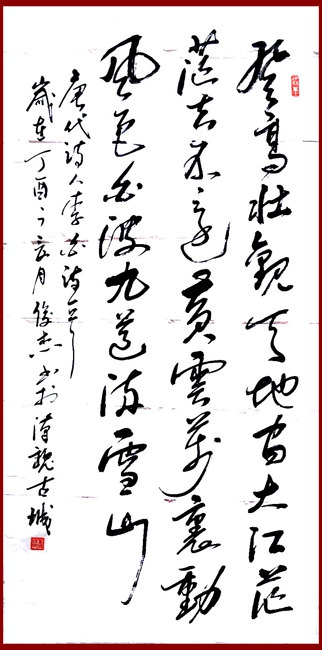 登高壯觀天地間大江茫
茫去不還黃雲萬裏動
風色白波九道流雪山
唐代詩人李白詩
歲在丁酉之亥月俊杰書於漢魏古城